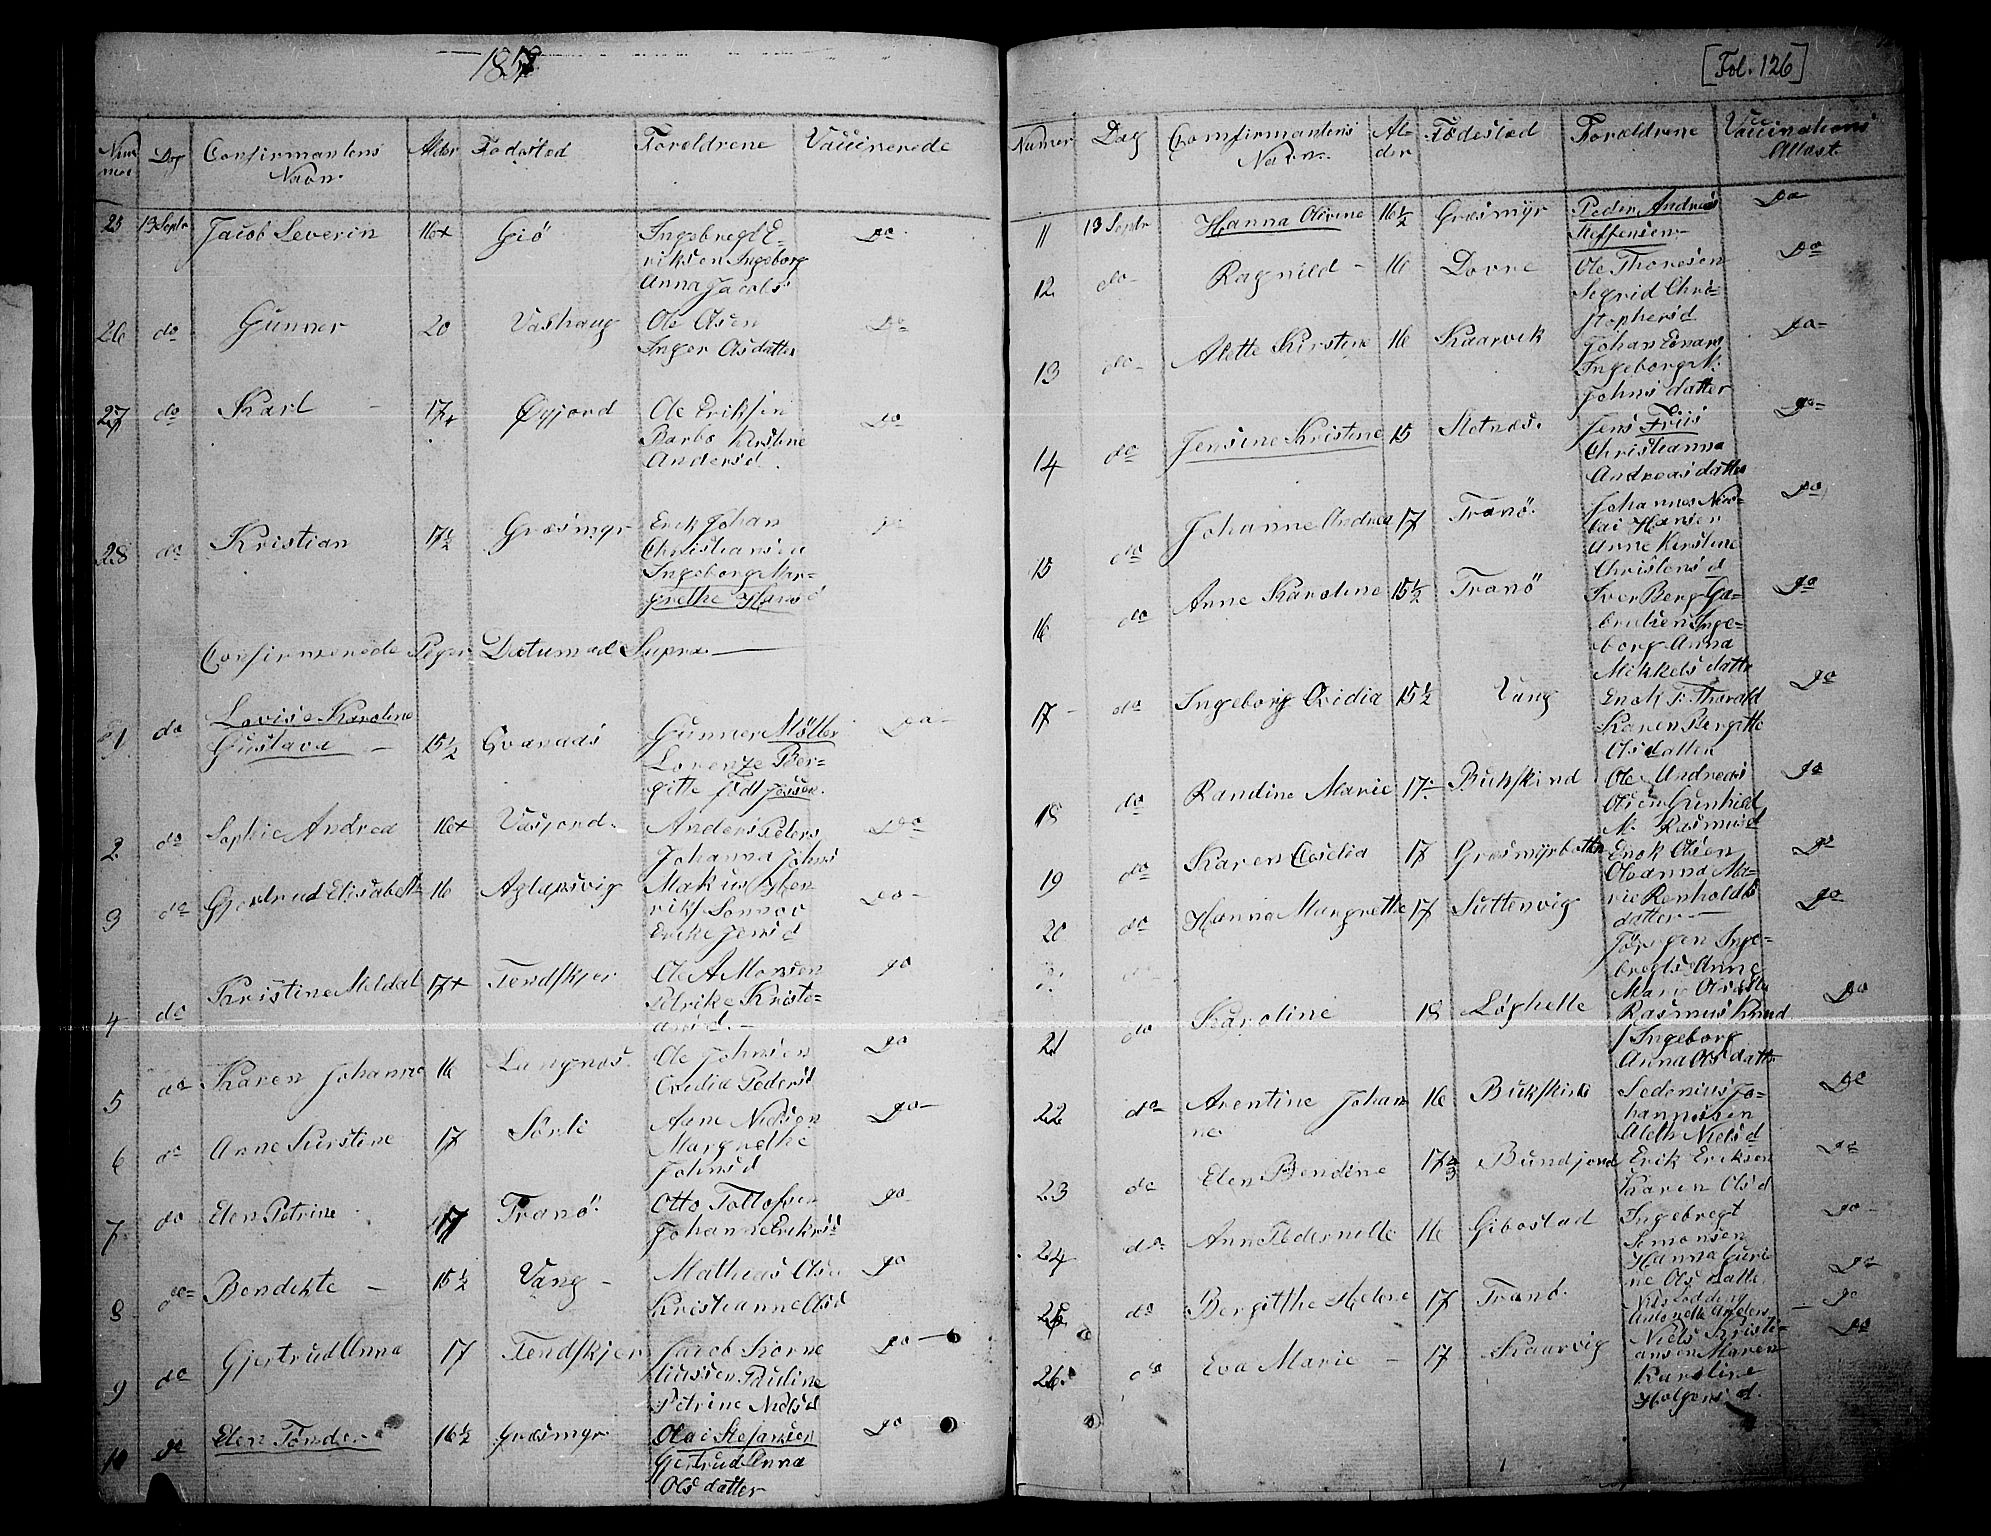 1857
Nummer Dag Confirmantens Navn. Alder Fødested Foreldrene Vaccinerede
25 13 Septr Jacob Severin 16+ Giö Ingebregt E- Do
riksen Ingeborg
Anna Jacobs
26 do Gunner 20 Vashaug Ole Olsen Do
Inger Olsdatter
27 do Karl - 17+ Øyjord Ole Eriksen do
Barbo Kirstine
Andersd.
28 do Kristian 17½ Græsmyr Erik Johan
Christiansen
Ingeborg Mar-
grethe Hansd
Confirmerede Piger Datum ad Supra
1 do Lovise Karoline
Gustava - 15½ Gvanaas Gunner Möller Do
Lorenze Ber-
gitte född Jessen.
2 do Sophie Andrea 16+ Vasjord. Anders Peders Do
Johanna Johns
3 do Gjertrud Elisabeth 16 Aglapsvig Makus Hen- Do-
riks
Erike Jensd
4 do Kristine Meldal 17+ Tendskjer Ole A Monsen Do
Petrike Kristi-
ansd. -
5 do Karen Johanna 16 Langnes. Ole Johnsen Do
Ovidia Pedersd
6 do Anne Kirstine 17 Sörli Arne Nielsen Do-
Margrethe
Johnsd
7 do Elen Petrine 17 Tranö Otto Tollefsen Do
Johanne Eriksd
8 do Bendikte - 15½ Vang - Mathias Olsen Do
Kristianne Olsd
9 do Gjertrud Anna 17 Tendskjer Jacob Korne- Do-
liussen Pauline
Petrine Nielsd
10 do Elen Tönder 16½ Græsmyr Olai Stefansen Do
Gjertrud Anna
Olsdatter
[Fol. 126]
Numer Dag Comfirmantens Navn. Alder Fødestæd Foræl̈drene Vaccinations Attest
11 13 Septr Hanna Olivine 16½ Græsmyr Peder Andreas Do
Steffensen
12 do Ragnild - 16 Dovre Ole Thoresen Do
Segrid Chri-
stophersd
13 do Alette Kirstine 16 Kaarvik Johan Edvard Do-
Ingeborg M.
Johnsdatter
14 do Jensine Kristine 15 Stetnæs. Jens Friis Do-
Christianna
Andreasdatter
15 do Johanne Andrea 17 Tranö. Johannes Nico- Do
lai Hansen
Anne Kirstine
Christensd
16 do Anne Karoline 15½ Tranö Iver Berg Ga- Do
brielsen Inge-
borg Anna
Mikkelsdatter
17 do Ingeborg Ovidia 15½ Vang Enok T. Thorald Do
Karen Bergitte
Olsdatter
18 do Randine Marie 17 Bukskind Ole Andreas Do
Olsen Gunhild
M. Rasmusd
19 do Karen Cecelia 17 Græsmyrbotten Enok Olsen Do
Oleanna Ma-
rie Renholds
datter
20 do Hanna Margrethe 17 Suttervig Jörgen Inge- Do
bregts Anne
Marie Olsdatter
21 do Karoline 18 Løghelle Rasmus Knud Do
Ingeborg
Anna Olsdatter
22 do Arentine Johan- 16 Bukskind Sedenius Jo- Do
ne hannesen
Aleth Nielsd
23 do Elen Bendine 17⅔ Bundjord Erik Eriksen Do
Karen Olsd
24 do Anne Pedernille 16 Gibostad Ingebregt Do-
Semonsen
Hanna Guri-
ne Olsdatter
25 do Bergitthe Helene 17 Tranö. Do
Antonette Anders Do
26 do Eva Marie - 17 Kaarvig Niels Kristi- Do
ansen Maren
Karoline
Holgersd.